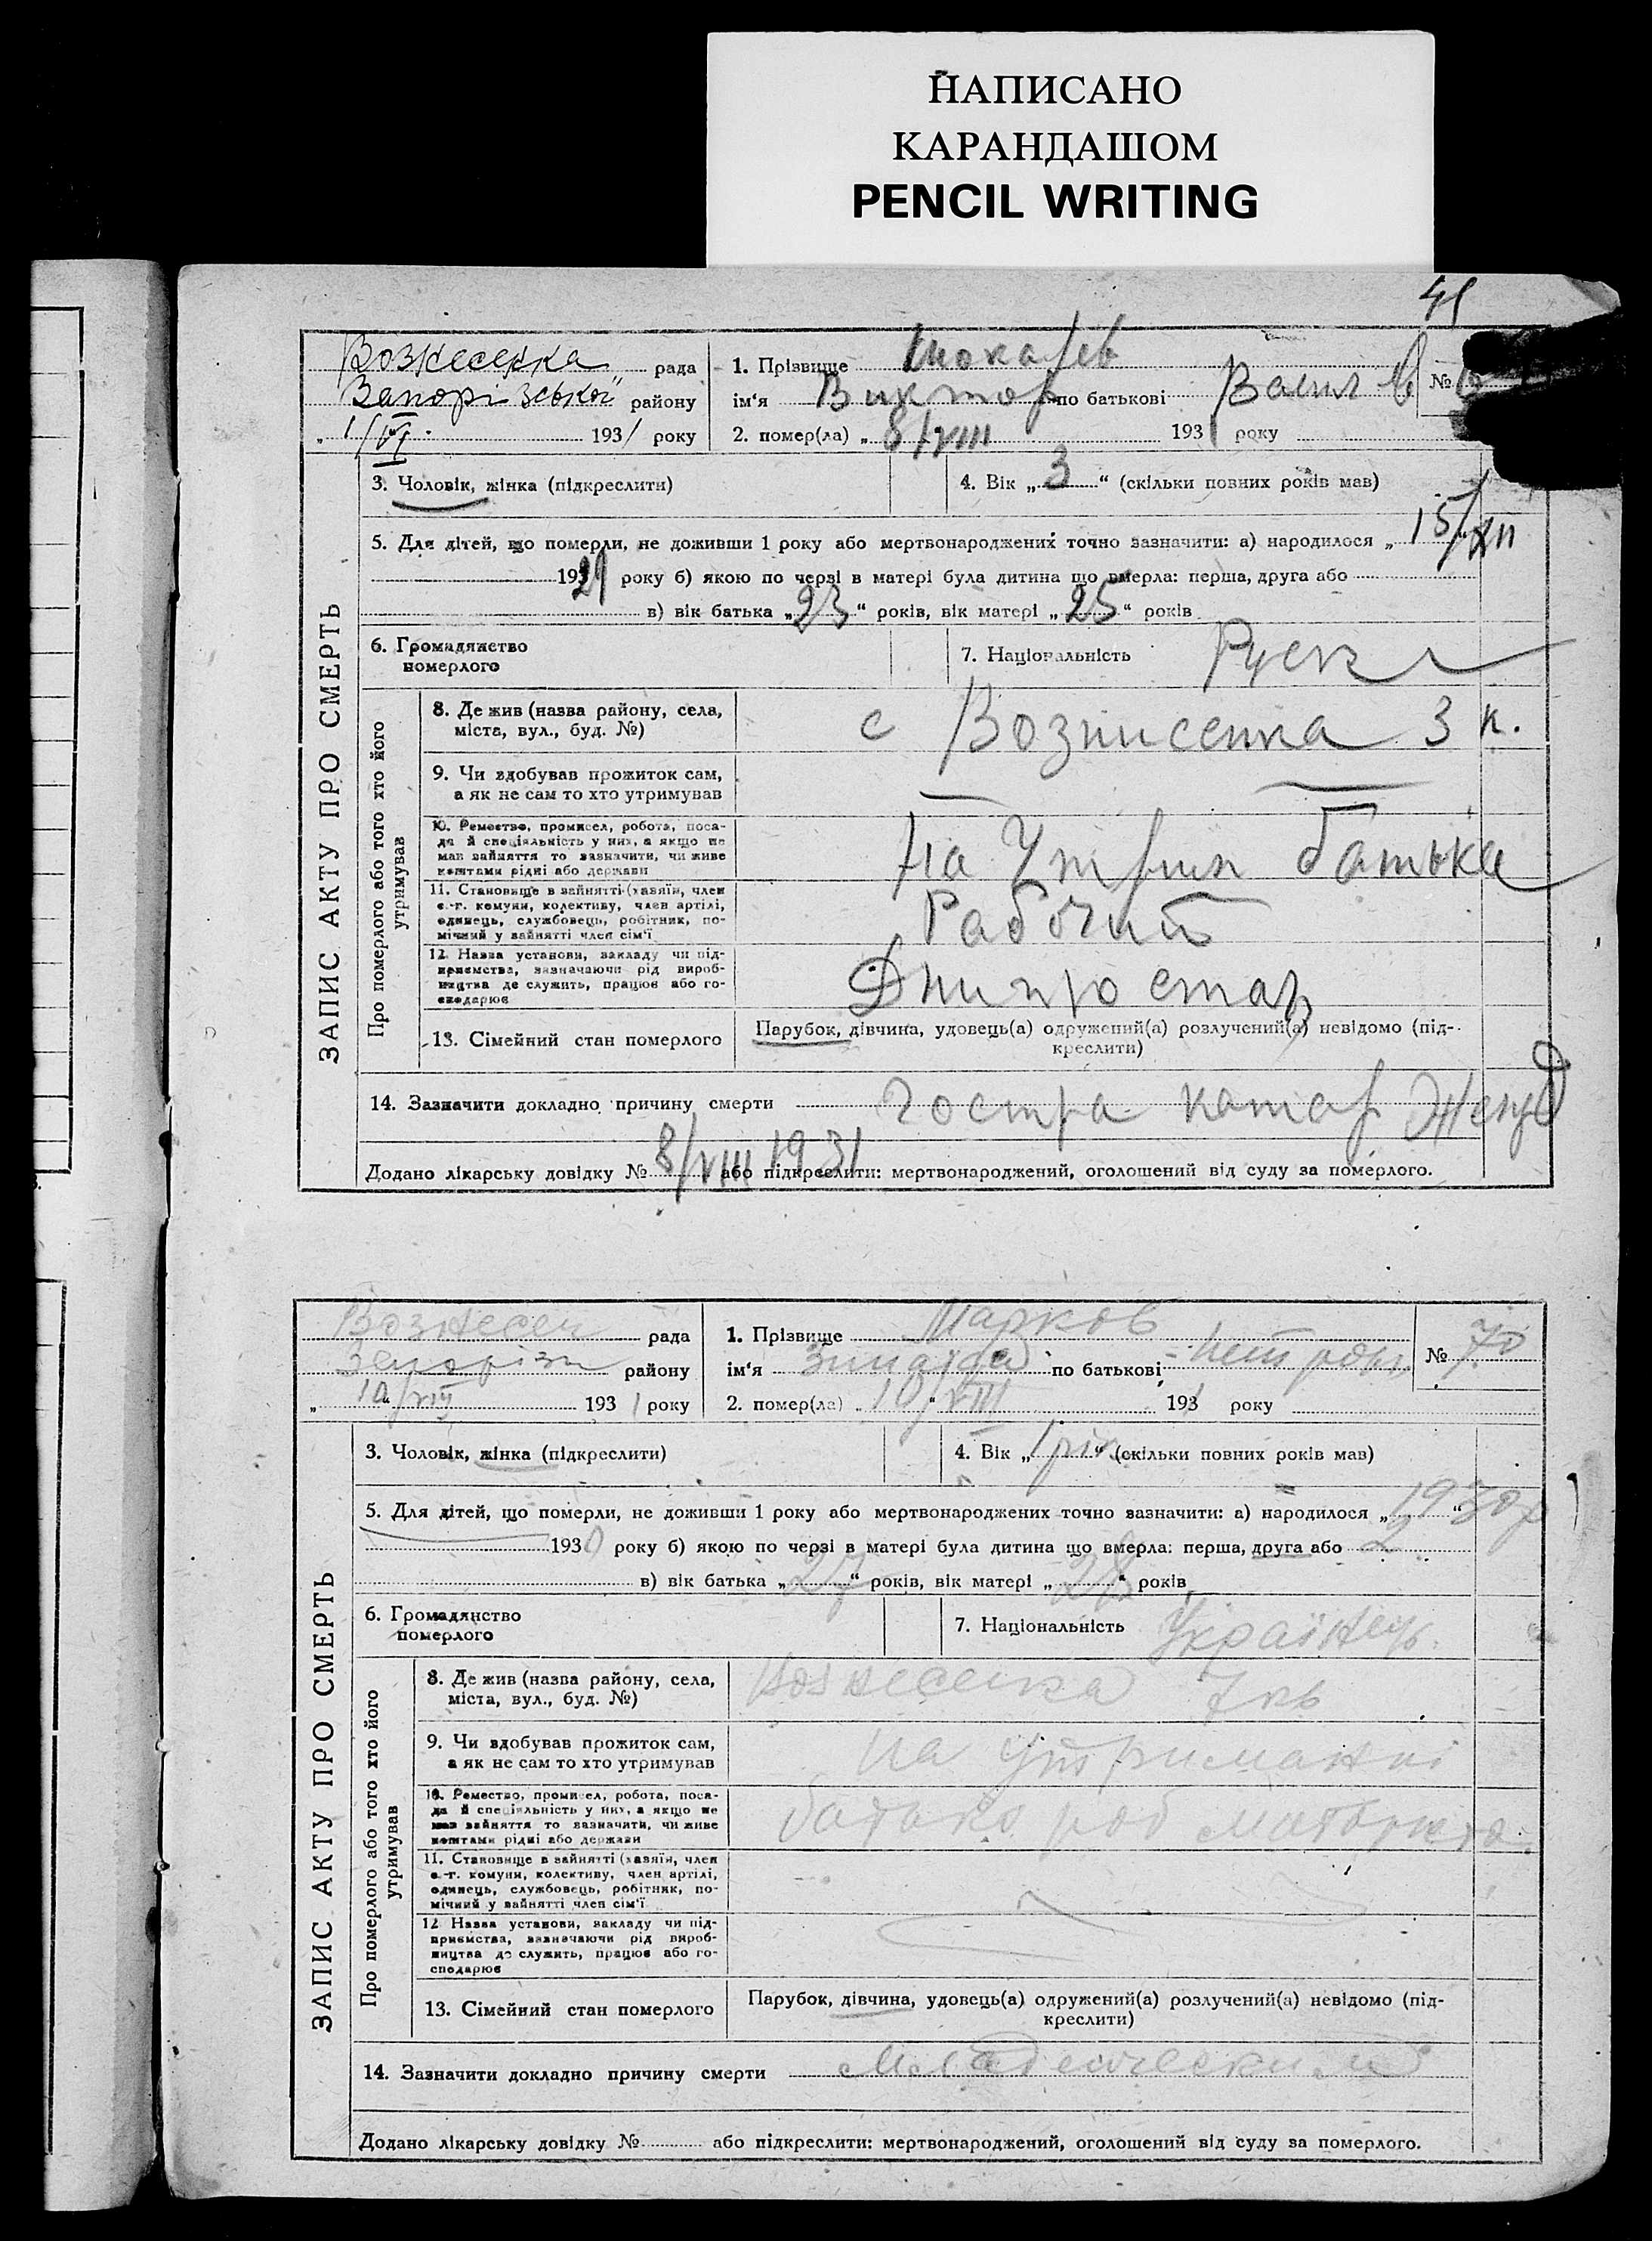 НАПИСАНО
КАРАНДАШОМ
PENCIL WRITING
Вознесенка рада
Запорізької району
„ 1/VI. 1931 року
1. Прізвище
ім'я Виктор по батькові Васил №
2. помер(ла) „ 8/VIII 1931 року
ЗАПИС АКТУ ПРО СМЕРТЬ
3. Чоловік, жінка (підкреслити)
4. Вік „ 3 “ (скільки повних років мав)
5. Для дітей, що померли, не доживши 1 року або мертвонароджених точно зазначити: а) народилося „ 15/XII
1929 року б) якою по черзі в матері була дитина що вмерла: перша, друга або
в) вік батька „ 23 “ років, вік матері „ 25 “ років
6. Громадянство
померлого
7. Національність Руск
Про померлого або того хто його
утримував
8. Де жив (назва району, села,
міста, вул., буд. №)
с Вознисенка 3 к.
9. Чи здобував прожиток сам,
а як не сам то хто утримував
10. Ремество, промисел, робота, поса-
да й спеціальність у них, а якщо не
мав зайняття то зазначити, чи живе
коштами рідні або держави
На Утрим батька
11. Становище в зайнятті (хазяїн, член
с.-г. комуни, колективу, член артілі,
одинець, службовець, робітник, по-
мічний у зайнятті член сім'ї
Рабочий
12. Назва установи, закладу чи під-
приємства, зазначаючи рід вироб-
ництва де служить, працює або го-
сподарює
13. Сімейний стан померлого
Парубок, дівчина, удовець(а) одружений(а) розлучений(а) невідомо (під-
креслити)
14. Зазначити докладно причину смерти гостра катар
Додано лікарську довідку № 8/VIII 1931 або підкреслити: мертвонароджений, оголошений від суду за померлого.
Вознесен рада
району
„ 10/VIII 1931 року
1. Прізвище Марков
ім'я по батькові № 70
2. помер(ла) „ 10/VIII 1931 року
ЗАПИС АКТУ ПРО СМЕРТЬ
3. Чоловік, жінка (підкреслити)
4. Вік „ 1 рік “ (скільки повних років мав)
5. Для дітей, що померли, не доживши 1 року або мертвонароджених точно зазначити: а) народилося „ 1930 р “
1930 року б) якою по черзі в матері була дитина що вмерла: перша, друга або 2
в) вік батька „ 27 “ років, вік матері „ 28 “ років
6. Громадянство
померлого
7. Національність Українець.
Про померлого або того хто його
утримував
8. Де жив (назва району, села,
міста, вул., буд. №)
Вознесенка 7 кв
9. Чи здобував прожиток сам,
а як не сам то хто утримував
на утриманні
10. Ремество, промисел, робота, поса-
да й спеціальність у них, а якщо не
мав зайняття то зазначити, чи живе
коштами рідні або держави
батько роб
11. Становище в зайнятті (хазяїн, член
с.-г. комуни, колективу, член артілі,
одинець, службовець, робітник, по-
мічний у зайнятті член сім'ї
12. Назва установи, закладу чи під-
приємства, зазначаючи рід вироб-
ництва де служить, працює або го-
сподарює
13. Сімейний стан померлого
Парубок, дівчина, удовець(а) одружений(а) розлучений(а) невідомо (під-
креслити)
14. Зазначити докладно причину смерти
Додано лікарську довідку № або підкреслити: мертвонароджений, оголошений від суду за померлого.